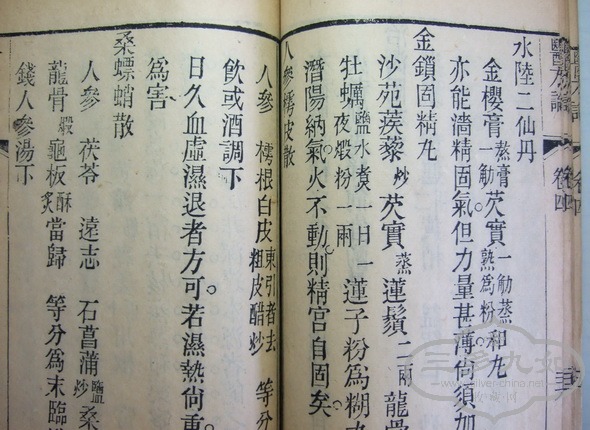 醫方論 卷四
水陸二仙丹
金櫻膏蒸膏一觔芡實一觔蒸熟為粉。和丸
亦能濇精固氣。但力量甚薄尚須加
金鎖固精丸
沙苑蒺藜炒芡實蒸蓮鬚二兩龍骨
牡蠣鹽水煑一日一夜煅粉一兩蓮子粉為糊
潛陽納氣。火不動。則精宮自固矣。
人參樗皮散
人參 樗根白皮東引者去粗皮醋炒 等分
飲或酒調下
日久血虛濕退者方可。若濕熱尚重
為害
桑螵蛸散
人參 茯苓 遠志 石菖蒲鹽炒桑
龍骨煅龜板酥炙當歸 等分為末臨
錢人參湯下